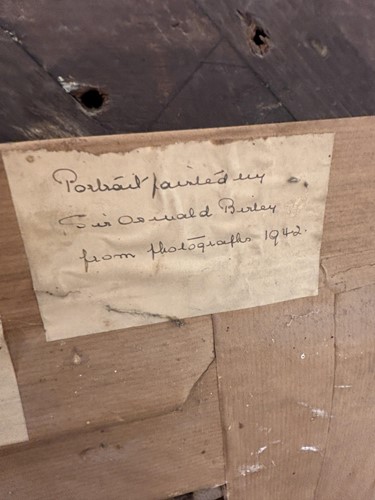 Portrait painted by
Sir Oswald Birley
from photographs 1942.